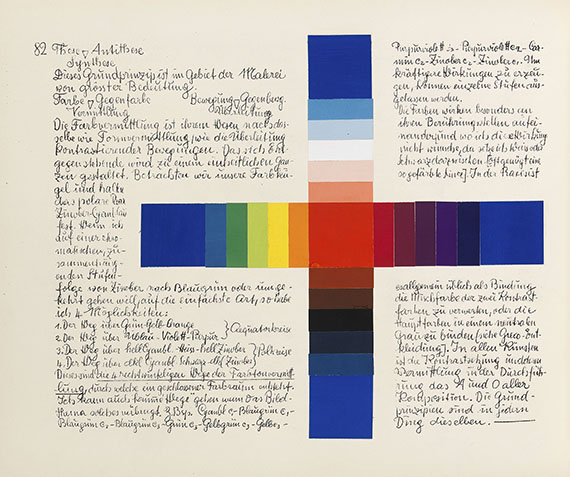 82 These ▽ Antithese
Synthese
Dieses Grundprinzip ist im Gebiet der Malerei
von grösster Bedeutung
Farbe ▽ Gegenfarbe Bewegung-Gegenbeweg.
Vermittlung
Die Farbvermittlung ist ihrem Wesen nach das-
selbe wie Formvermittlung, wie die Überleitung
kontrastierender Bewegungen. Das sich Ent-
gegen stehende wird zu einem einheitlichen Gan-
zen gestaltet. Betrachten wir unsere Farbku-
gel und halte
das polare Paar
Zinober-Cyanblau
fest. Wenn ich
auf einer chro-
matischen, zu-
sammenhäng-
enden Stufen-
folge von Zinober nach Blaugrün oder umge-
kehrt gehen will, auf die einfachste Art, so habe
ich 4 Möglichkeiten:
1. Der Weg über Grün-Gelb-Orange
2. Der Weg über Violett-Purpur
3. Der Weg über hell Cyanbl.-Weiss-hell Zinober
4. Der Weg über dkl. Cyanbl. Schwarz dkl. Zinober
Dieses sind die 4 rechtwinkligen Wege der Farbtonvermitt-
lung, durch welche ein geschlossener Farbraum entsteht.
Ich kann auch krumme Wege gehen wenn das Bild-
thema solches verlangt. z. Bsp. Cyanbl. e₁ - Blaugrün e₁,
Blaugrün e₂, - Blaugrün e₃, - Grün e₃ - Gelbgrün e₃ - Gelb e₃ -
Purpurviolett e₃ - Purpurviolett e₂ - Car-
min e₂ - Zinober e₂ - Zinober e₁. Um
kräftigere Wirkungen zu erzeu-
gen, können einzelne Stufen aus-
gelassen werden.
Die Farben wirken besonders an
ihren Berührungsstellen aufei-
nander und wo ich die Wirkung
nicht wünsche, da arbeite ich
so gefärbte Linie]. In der Praxis ist
es allgemein üblich als Bindung
die Mischfarbe der zwei Kontrast-
farben zu verwerten, oder die
Hauptfarben in einem neutralen
Grau zu binden (siehe Grau-Ent-
kleidung). In allen Künsten
ist die Kontrastsetzung und deren
Vermittlung in der Durchfüh-
rung das A und O aller
Komposition. Die Grund-
prinzipien sind in jedem
Ding dieselben.